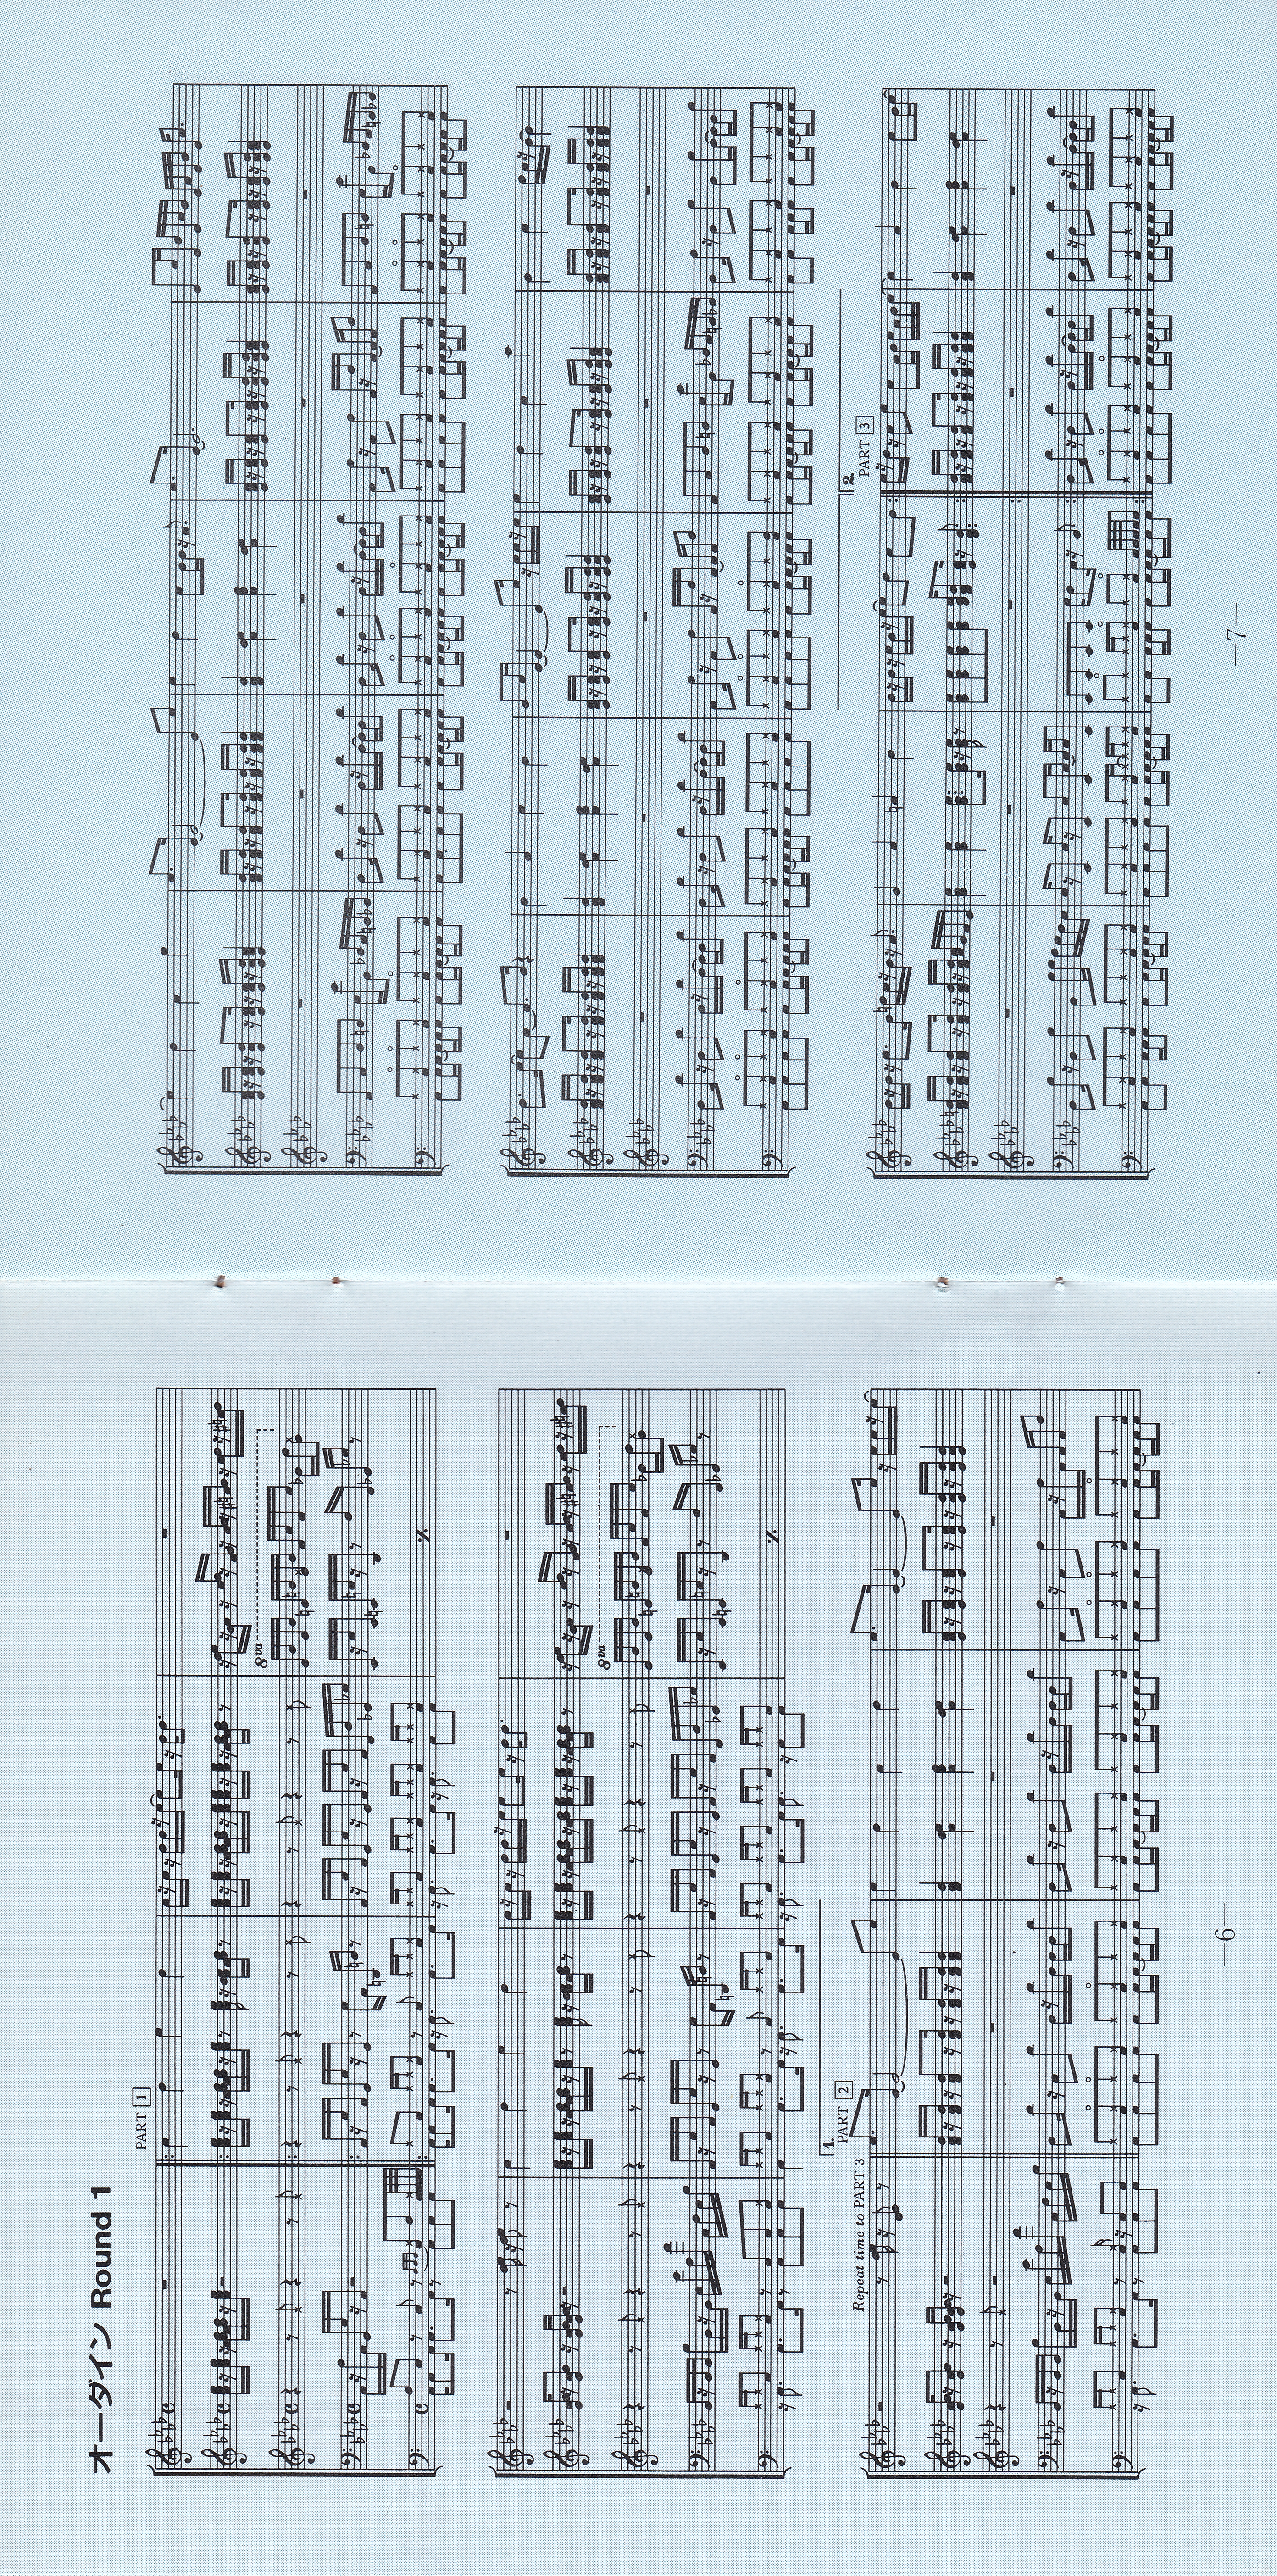 オーダイン Round 1
PART 1
8va
8va
Repeat time to PART 3
1.
PART 2
—6—
2.
PART 3
—7—